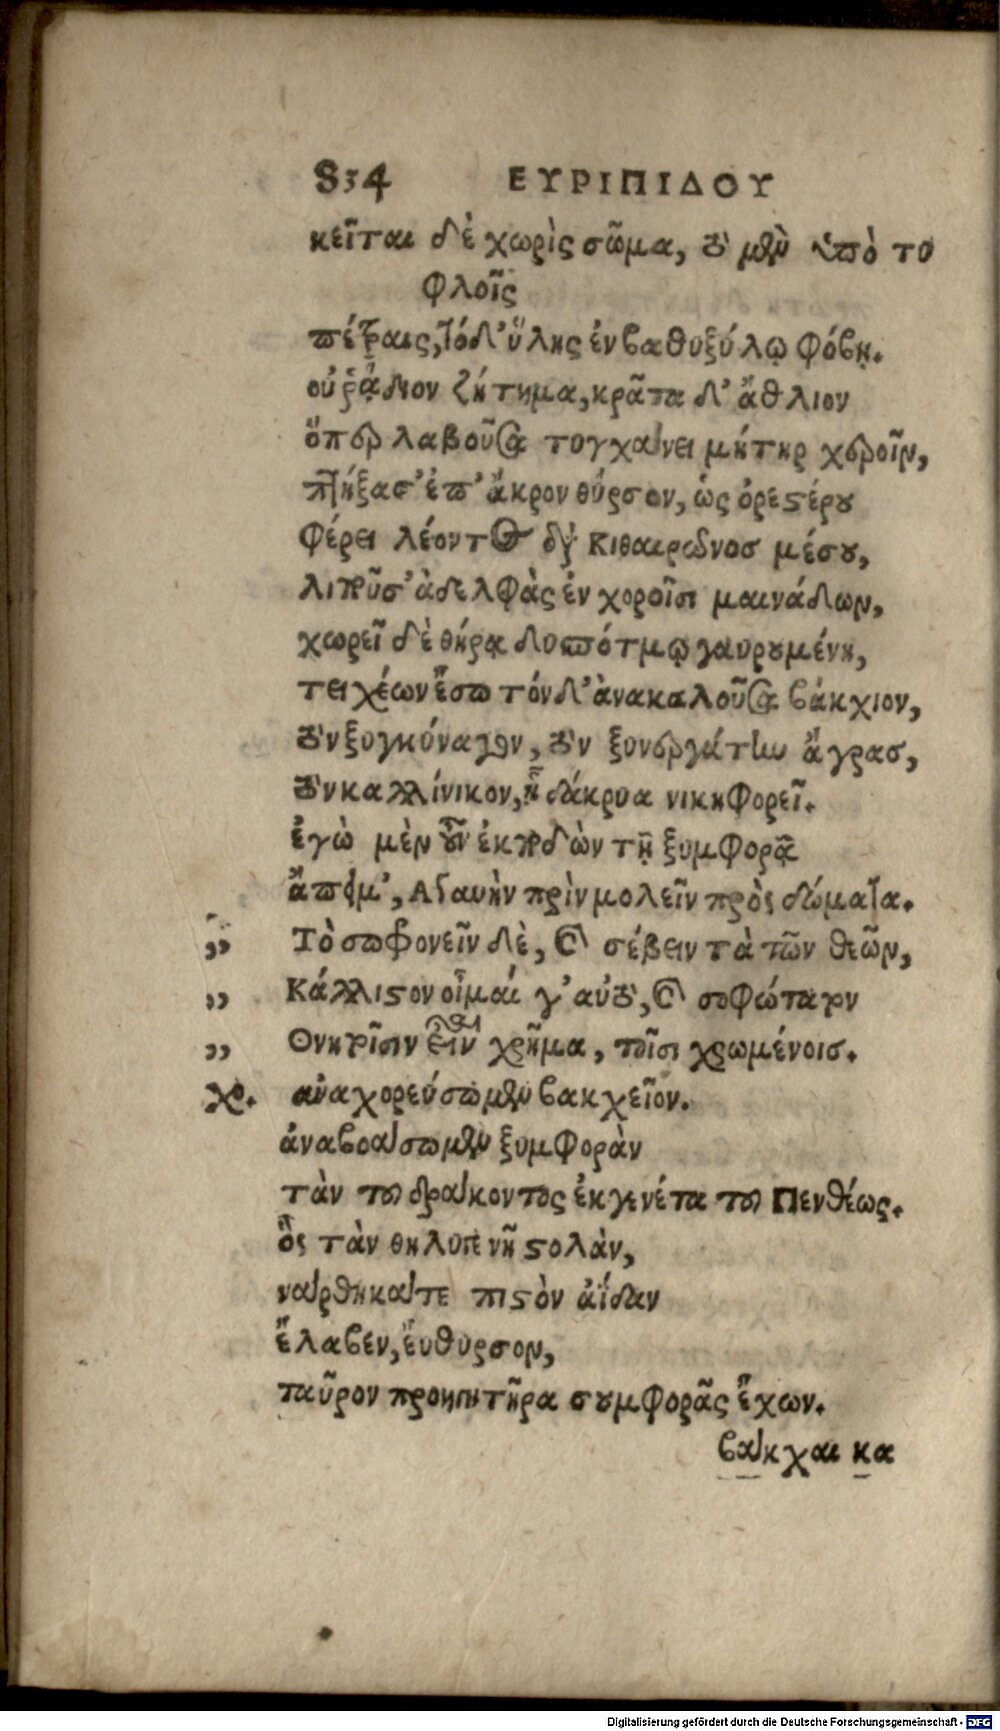 834 ΕΥΡΙΠΙΔΟΥ
κεῖται δὲ χωρὶς σῶμα, τὸ μὲν ὑπὸ το
φλοῖς
πέτραις, τὸ δ' ὕλης ἐν βαθυξύλῳ φόβῃ.
οὐ ῥᾴδιον ζήτημα, κρᾶτα δ' ἄθλιον
ὅπερ λαβοῦσα τυγχάνει μήτηρ χεροῖν,
πήξασ' ἐπ' ἄκρον θύρσον, ὡς ὀρεστέρου
φέρει λέοντος διὰ Κιθαιρῶνοσ μέσου,
λιποῦσ' ἀδελφὰς ἐν χοροῖσι μαινάδων,
χωρεῖ δὲ θήρᾳ δυσπότμῳ γαυρουμένη,
τειχέων ἔσω τόνδ' ἀνακαλοῦσα βάκχιον,
τὸν ξυγκύναγον, τὸν ξυνεργάτην ἄγρασ,
τὸν καλλίνικον, ᾗ δάκρυα νικηφορεῖ.
ἐγὼ μὲν οὖν ἐκποδὼν τῇ ξυμφορᾷ
ἄπειμ', Ἀγαυὴν πρὶν μολεῖν πρὸς δώματα.
„ Τὸ σωφρονεῖν δὲ, καὶ σέβειν τὰ τῶν θεῶν,
„ Κάλλιστον οἶμαί γ' αὐτὸ, καὶ σοφώτατον
„ Θνητοῖσιν εἶναι χρῆμα, τοῖσι χρωμένοισ.
χο. ἀναχορεύσωμεν βακχεῖον.
ἀναβοάσωμεν ξυμφορὰν
τὰν τοῦ δράκοντος ἐκγενέτα τοῦ Πενθέως.
ὃς τὰν θηλυγενῆ στολὰν,
νάρθηκά τε πιστὸν ἀΐδαν
ἔλαβεν, εὔθυρσον,
ταῦρον προηγητῆρα συμφορᾶς ἔχων.
βάκχαι κα
Digitalisierung gefördert durch die Deutsche Forschungsgemeinschaft - DFG